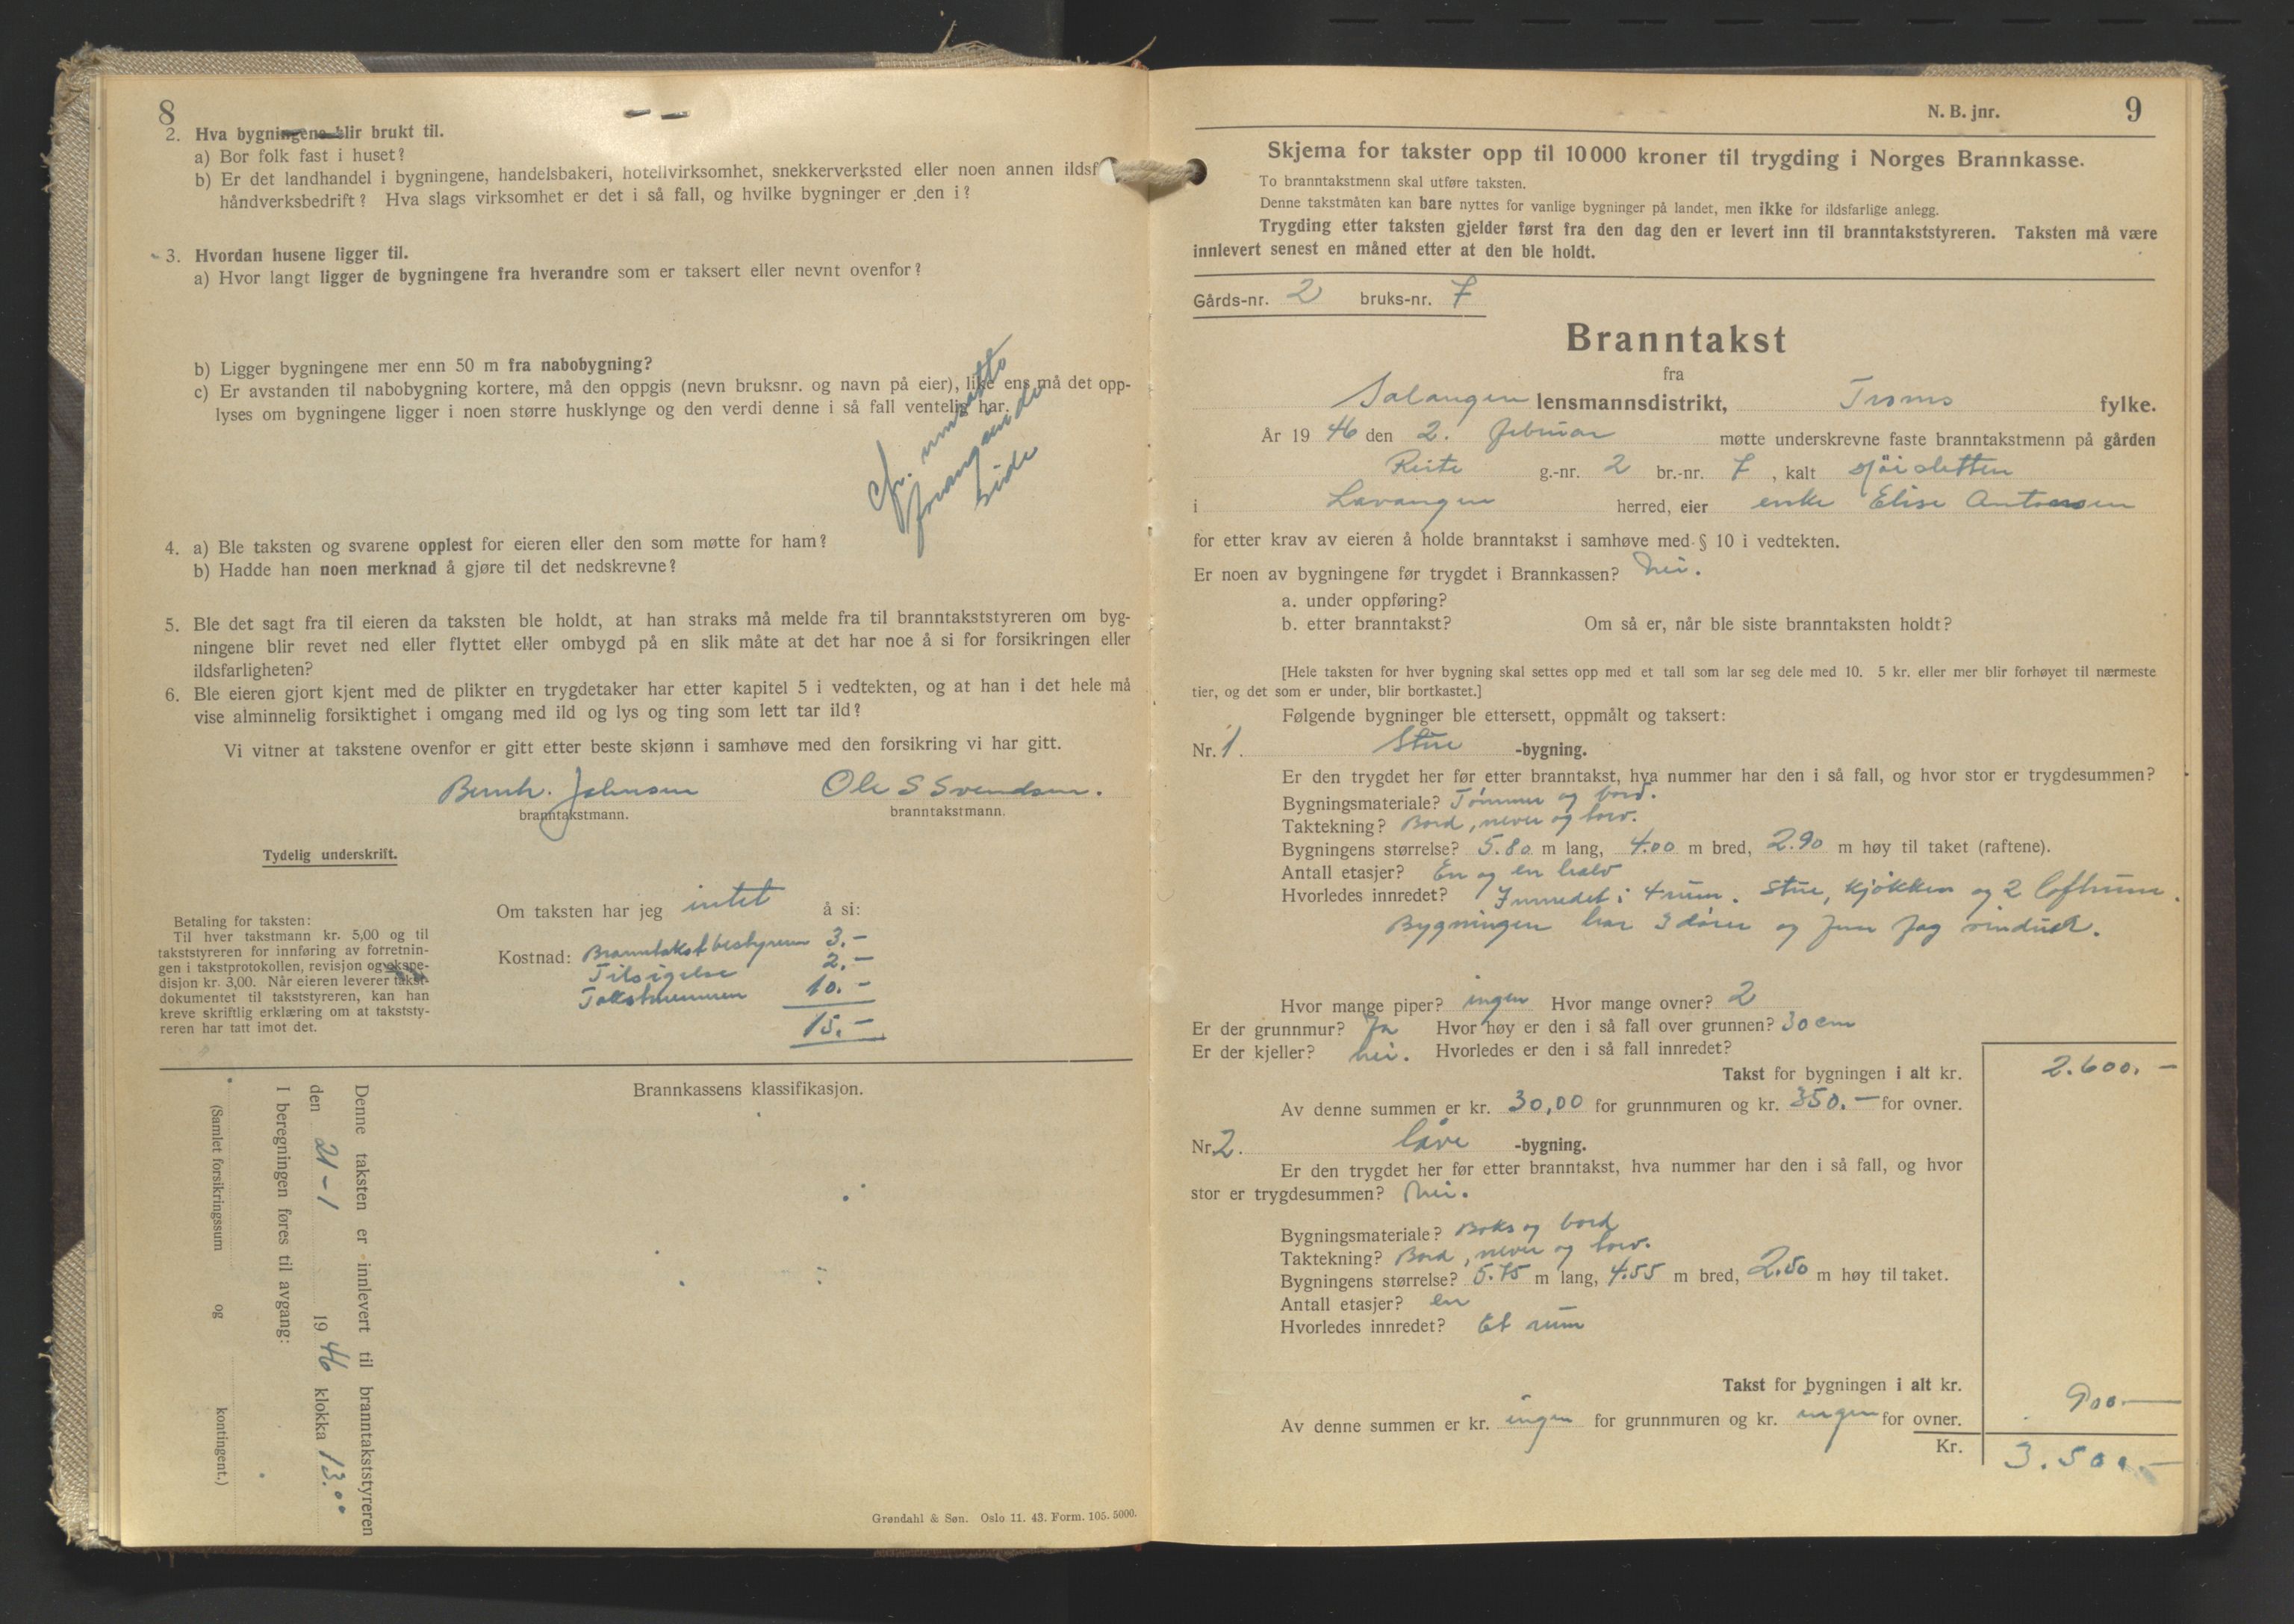 8
2. Hva bygningene blir brukt til.
a) Bor folk fast i huset?
b) Er det landhandel i bygningene, handelsbakeri, hotellvirksomhet, snekkerverksted eller noen annen ildsf
håndverksbedrift? Hva slags virksomhet er det i så fall, og hvilke bygninger er den i?
3. Hvordan husene ligger til.
a) Hvor langt ligger de bygningene fra hverandre som er taksert eller nevnt ovenfor?
b) Ligger bygningene mer enn 50 m fra nabobygning?
c) Er avstanden til nabobygning kortere, må den oppgis (nevn bruksnr. og navn på eier), like ens må det opp-
lyses om bygningene ligger i noen større husklynge og den verdi denne i så fall ventelig har.
side
4. a) Ble taksten og svarene opplest for eieren eller den som møtte for ham?
b) Hadde han noen merknad å gjøre til det nedskrevne?
5. Ble det sagt fra til eieren da taksten ble holdt, at han straks må melde fra til branntakststyreren om byg-
ningene blir revet ned eller flyttet eller ombygd på en slik måte at det har noe å si for forsikringen eller
ildsfarligheten?
6. Ble eieren gjort kjent med de plikter en trygdetaker har etter kapitel 5 i vedtekten, og at han i det hele må
vise alminnelig forsiktighet i omgang med ild og lys og ting som lett tar ild?
Vi vitner at takstene ovenfor er gitt etter beste skjønn i samhøve med den forsikring vi har gitt.
Bernh. Johnsen Ole S Svendsen.
branntakstmann. branntakstmann.
Tydelig underskrift.
Om taksten har jeg intet å si:
Betaling for taksten:
Til hver takstmann kr. 5,00 og til
takststyreren for innføring av forretnin-
gen i takstprotokollen, revisjon og ekspe-
disjon kr. 3,00. Når eieren leverer takst-
dokumentet til takststyreren, kan han
kreve skriftlig erklæring om at takststy-
reren har tatt imot det.
Kostnad: Branntakstbestyreren 3.-
Tilsigelse 2.-
Takstmennen 10.-
15.-
Brannkassens klassifikasjon.
Denne taksten er innlevert til branntakststyreren
den 21-1 1946 klokka 13.00
I beregningen føres til avgang:
(Samlet forsikringssum og kontingent.)
Grøndahl & Søn. Oslo 11. 43. Form. 105. 5000.
N. B. jnr. 9
Skjema for takster opp til 10 000 kroner til trygding i Norges Brannkasse.
To branntakstmenn skal utføre taksten.
Denne takstmåten kan bare nyttes for vanlige bygninger på landet, men ikke for ildsfarlige anlegg.
Trygding etter taksten gjelder først fra den dag den er levert inn til branntakststyreren. Taksten må være
innlevert senest en måned etter at den ble holdt.
Gårds-nr. 2 bruks-nr. 7
Branntakst
fra
Salangen lensmannsdistrikt, Troms fylke.
År 1946 den 2. februar møtte underskrevne faste branntakstmenn på gården
Reite g.-nr. 2 br.-nr. 7, kalt sjøisletten
i Lavangen herred, eier enke Elise Antonsen
for etter krav av eieren å holde branntakst i samhøve med § 10 i vedtekten.
Er noen av bygningene før trygdet i Brannkassen? Nei.
a. under oppføring?
b. etter branntakst? Om så er, når ble siste branntaksten holdt?
[Hele taksten for hver bygning skal settes opp med et tall som lar seg dele med 10. 5 kr. eller mer blir forhøyet til nærmeste
tier, og det som er under, blir bortkastet.]
Følgende bygninger ble ettersett, oppmålt og taksert:
Nr. 1. Stue -bygning.
Er den trygdet her før etter branntakst, hva nummer har den i så fall, og hvor stor er trygdesummen?
Bygningsmateriale? Tømmer og bord.
Taktekning? Bord, never og torv.
Bygningens størrelse? 5.80 m lang, 4.00 m bred, 2.90 m høy til taket (raftene).
Antall etasjer? En og en halv
Hvorledes innredet? Innredet i 4 rum. Stue, kjøkken og 2 loftsrum.
Bygningen har 3 dører og fem fag vinduer.
Hvor mange piper? ingen Hvor mange ovner? 2
Er der grunnmur? Ja Hvor høy er den i så fall over grunnen? 30 cm
Er der kjeller? nei. Hvorledes er den i så fall innredet?
Takst for bygningen i alt kr. 2.600.-
Av denne summen er kr. 30,00 for grunnmuren og kr. 350.- for ovner.
Nr 2. låve -bygning.
Er den trygdet her før etter branntakst, hva nummer har den i så fall, og hvor
stor er trygdesummen? Nei.
Bygningsmateriale? Boks og bord
Taktekning? Bord, never og torv.
Bygningens størrelse? 5.75 m lang, 4.55 m bred, 2.50 m høy til taket.
Antall etasjer? en
Hvorledes innredet? Et rum
Takst for bygningen i alt kr. 900.-
Av denne summen er kr. ingen for grunnmuren og kr. ingen for ovner.
Kr. 3.500.-